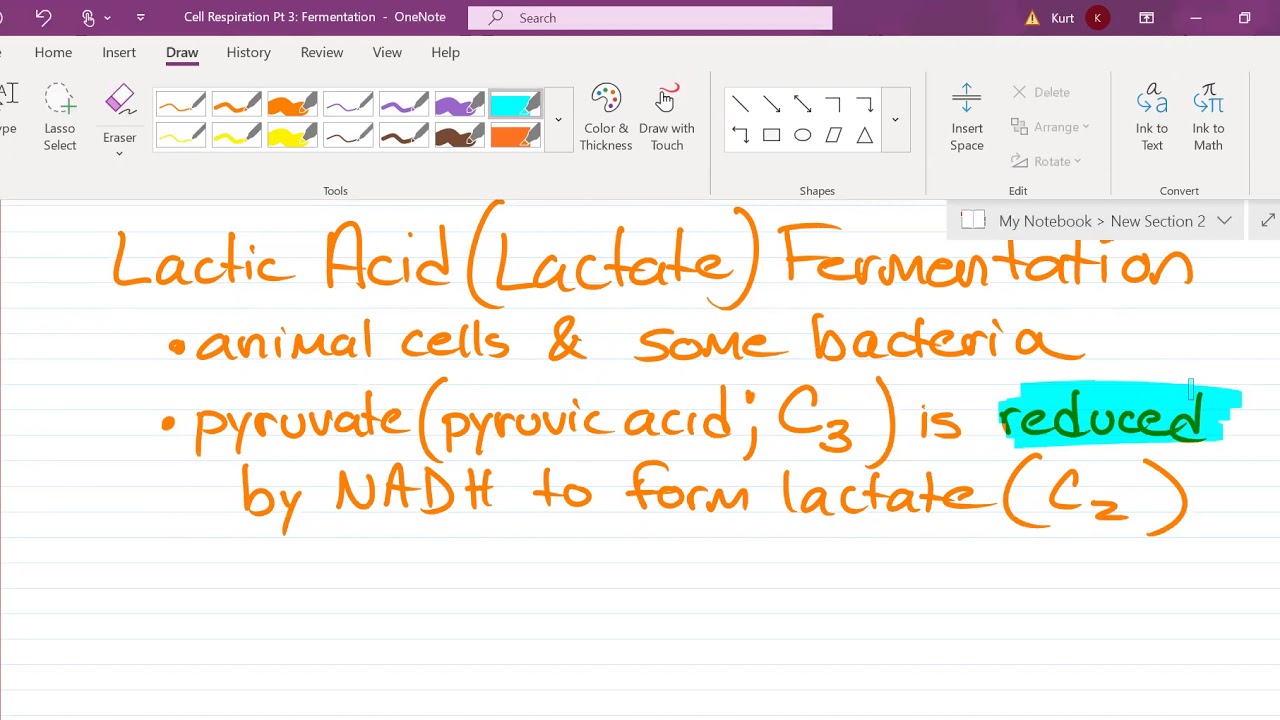 Cell Respiration Pt 3: Fermentation - OneNote
Search
Kurt K
Home Insert Draw History Review View Help
Lasso Select
Eraser
Color & Thickness
Draw with Touch
Insert Space
Delete
Arrange
Rotate
a a
Ink to Text
π π
Ink to Math
Tools Shapes Edit Convert
My Notebook > New Section 2
Lactic Acid (Lactate) Fermentation
• animal cells & some bacteria
• pyruvate (pyruvic acid; C3) is reduced
by NADH to form lactate (C2)